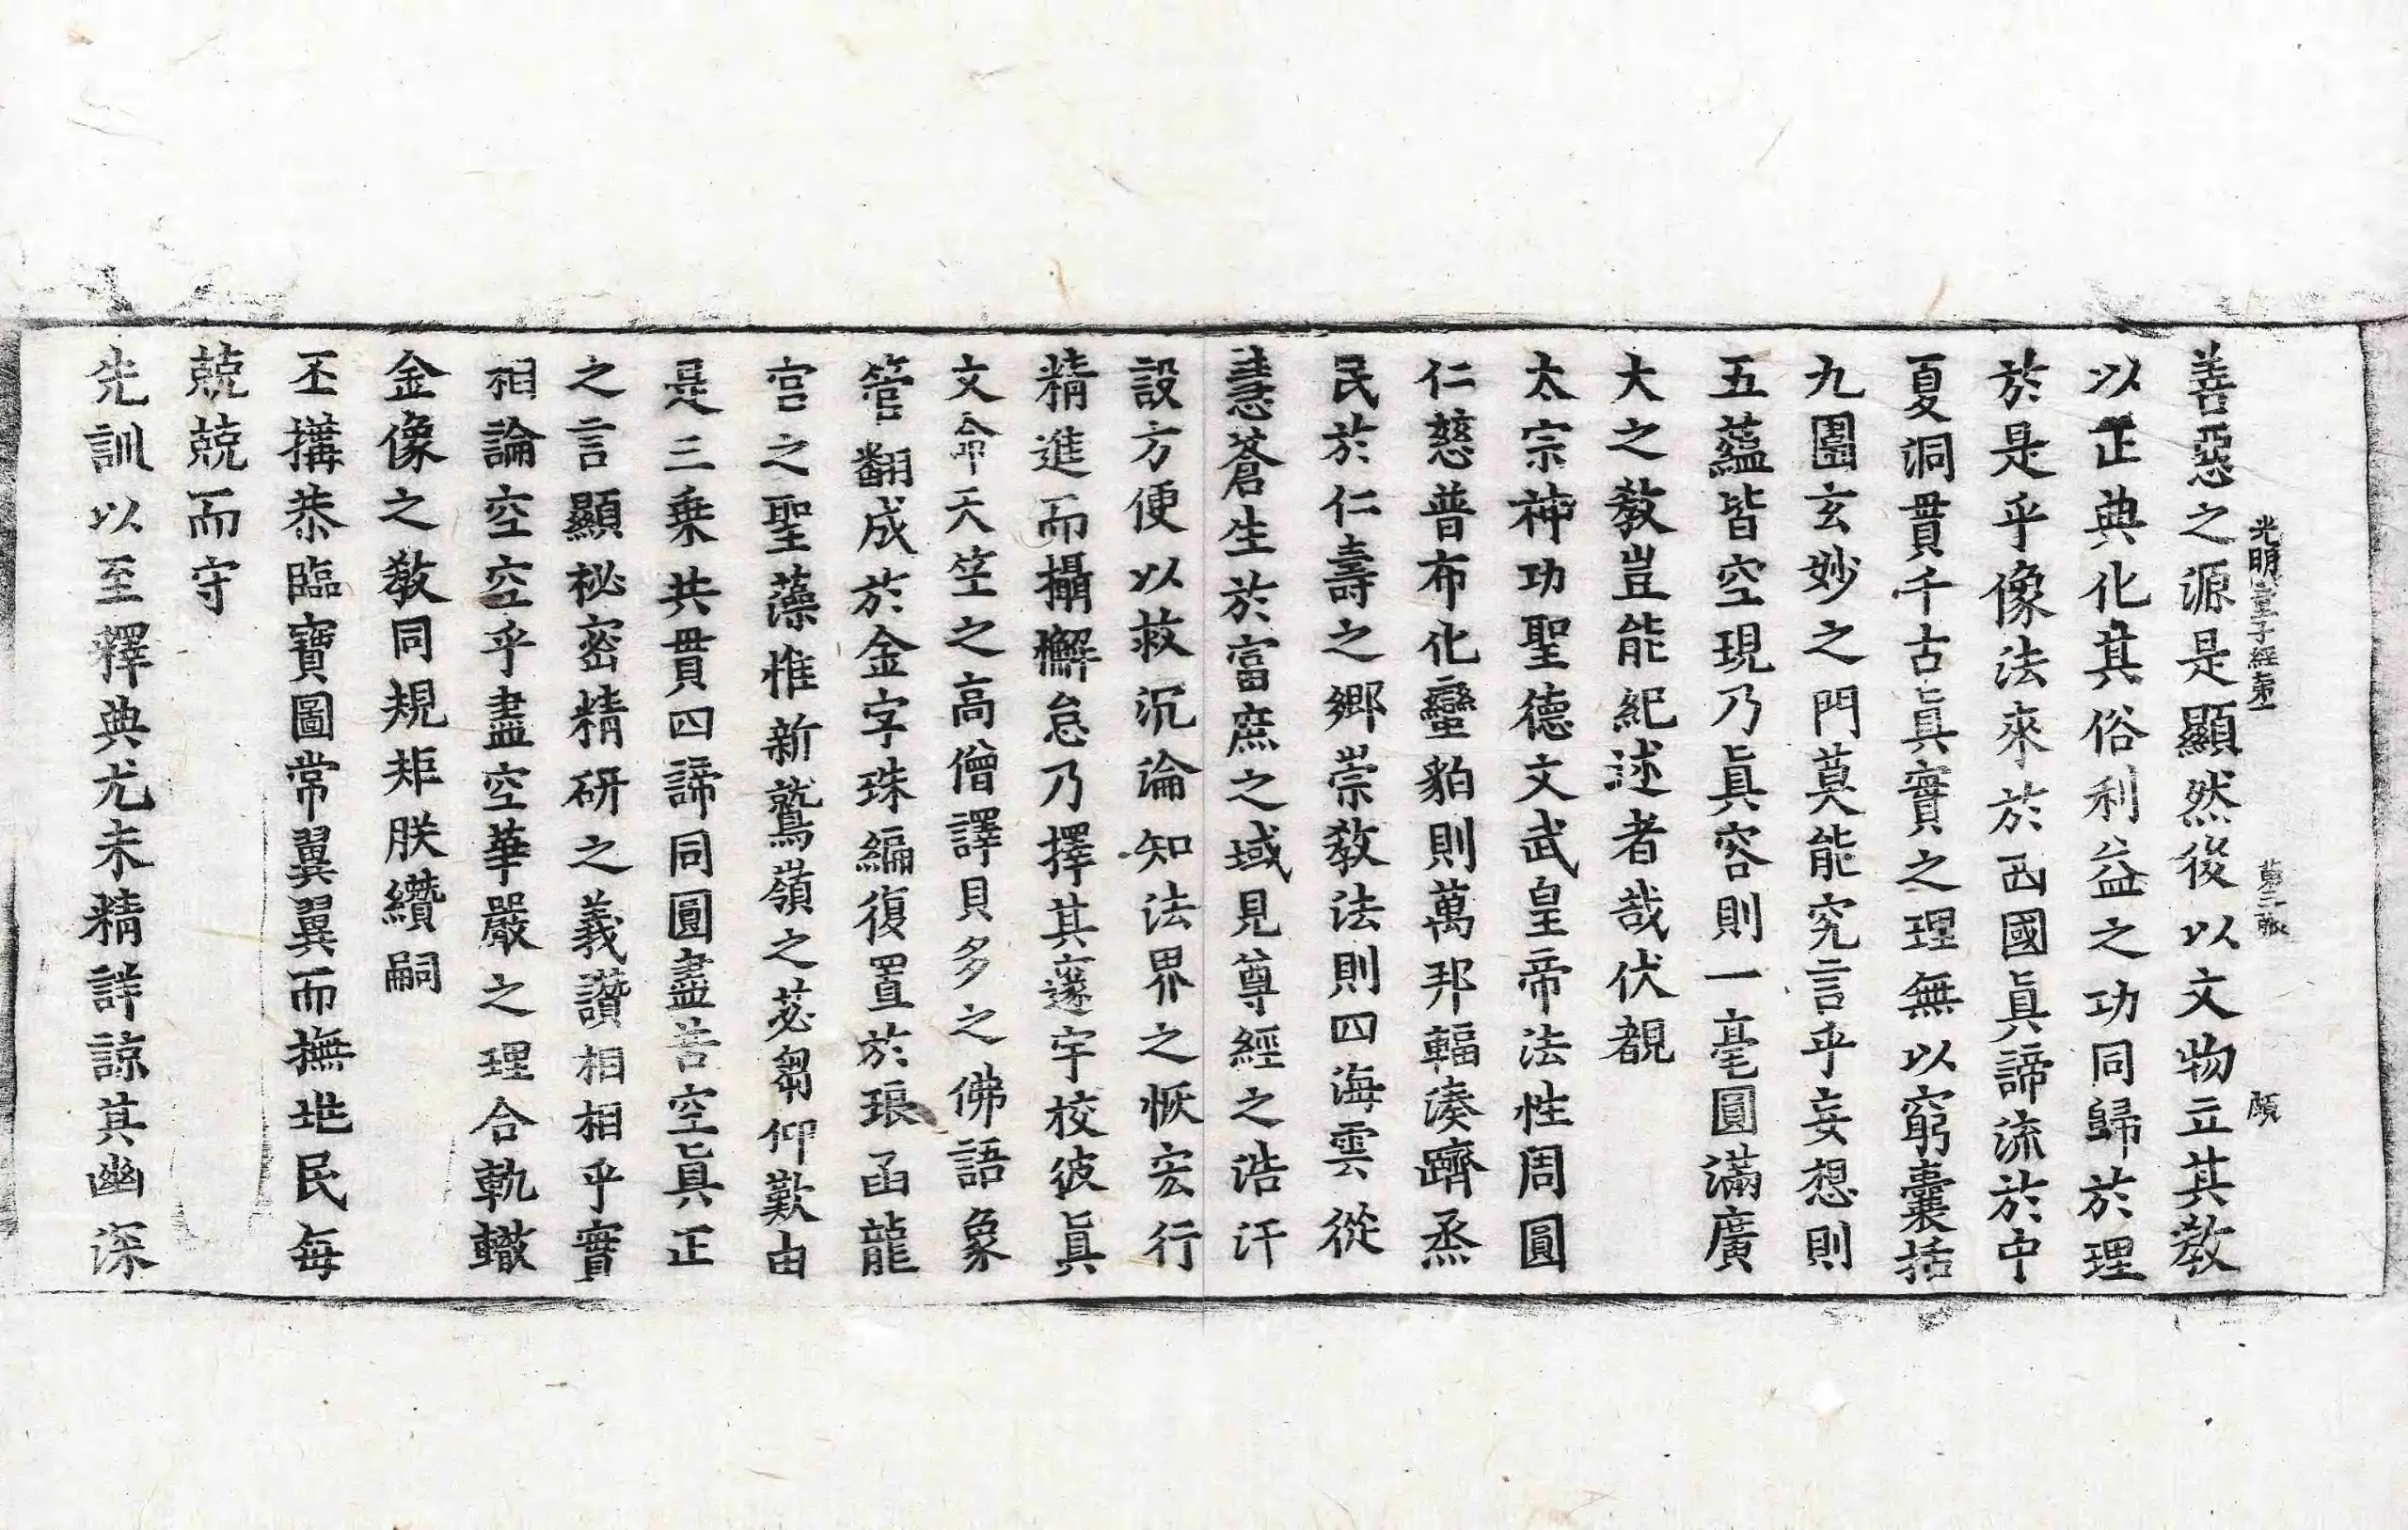 光明童子經序 第二張 頋
善惡之源是顯然後以文物立其教
以正典化其俗利益之功同歸於理
於是乎像法來於西國眞諦流於中
夏洞貫千古眞實之理無以窮囊括
九圍玄妙之門莫能究言乎妄想則
五蘊皆空現乃眞容則一毫圓滿廣
大之教豈能紀述者哉伏覩
太宗神功聖德文武皇帝法性周圓
仁慈普布化蠻貊則萬邦輻湊躋烝
民於仁壽之鄉崇教法則四海雲從
惠蒼生於富庶之域見尊經之浩汗
設方便以救沉淪知法界之恢宏行
精進而攝懈怠乃擇其邃宇校彼眞
文命天竺之高僧譯貝多之佛語象
管翻成於金字珠編復置於琅函龍
宮之聖藻惟新鷲嶺之苾芻仰歎由
是三乗共貫四諦同圓盡苦空眞正
之言顯祕密精研之義讚相相乎實
相論空空乎盡空華嚴之理合軌轍
金像之教同規矩朕纘嗣
丕搆恭臨寶圖常翼翼而撫兆民每
兢兢而守
先訓以至釋典尤未精詳諒其幽深